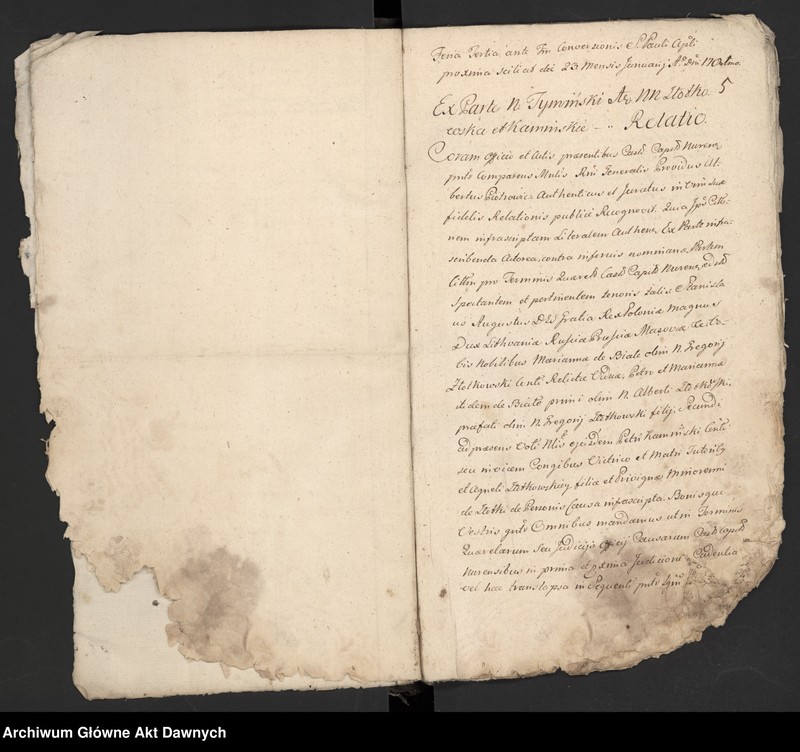 Feria Tertia ante Fm Conversionis S. Pauli Apli
proxima scilicet die 23 Mensis Januarij Ao Dni
5
Ex Parte N. Tyminski Ar. NN Zlotko-
woska et Kaminskie Relatio.
Coram Officio et Actis praesentibus Castr. Capit. Nurens.
Comparens Mnlis Rni Generalis Providus Al-
bertus Piotrowicz Authenticus et Juratus in vim suae
fidelis Relationis publice Recognovit. Quia Ipse
nem infrascriptam Literalem Authen. Ex Parte infra-
scribenda Actorea, contra inferius nominand. Partem
Littm pro Terminis Quaerel. Castr. Capit. Nurens.
spectantem et pertinentem tenoris talis. Stanisla-
us Augustus Dei Gratia Rex Poloniae Magnus
Dux Lithvaniae Russiae Prussiae Mazoviae etc. Vo-
bis Nobilibus Marianna de Białe olim N. Gregorij
Zlotkowski Relicta Vidua, Petro et Marianna
itidem de Białe primi olim N. Alberti Zlotkowski,
praefati olim N. Gregorij Zlotkowski filij, Secundi
ad praesens Voti ejusdem Petri Kaminski
seu invicem Conjugibus Vietrico et Matri Tutorib.
et Agneti Zlotkowskiey filiae et Privignae Minorenni
de Zlotki de Personis Causa infrascripta. Bonisque
Vestris Omnibus, mandamus ut in Terminis
Quaerelarum seu Judicijs Officij Causarum Castr. Capit.
Nurensibus in prima et pxma Judiciorum Cadentia
vel hac translapsa in Sequenti
Archiwum Główne Akt Dawnych